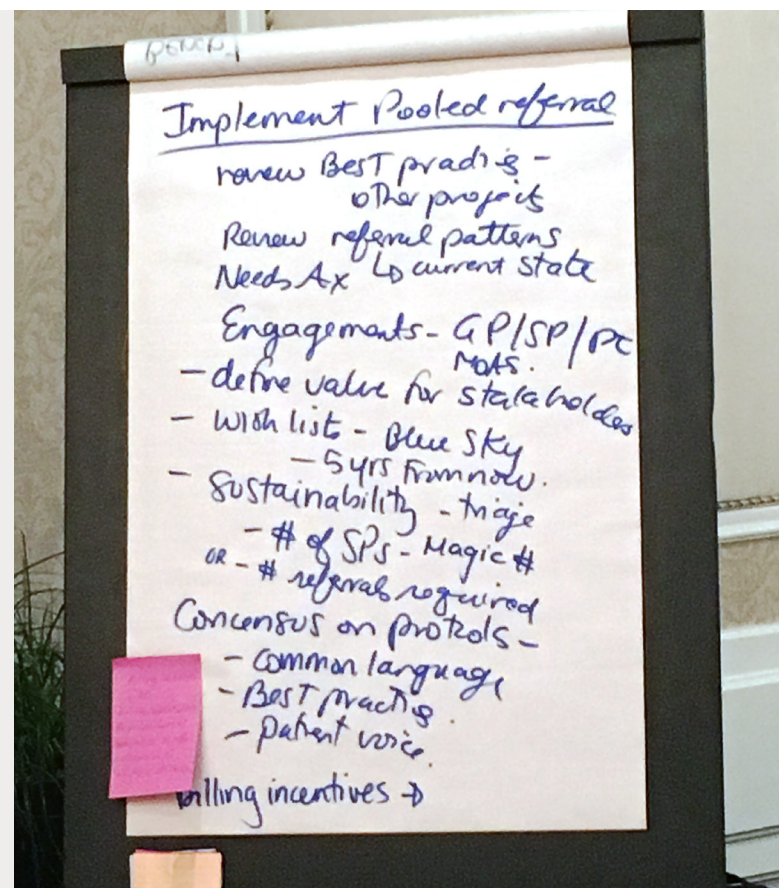 Implement Pooled referral
review Best practis -
other projects
Review referral patterns
Needs Ax ↳ current state
Engagements - GP/SP/PC
MOAS.
- define value for stakeholdes
- wish list - Blue Sky
- 5 yrs from now.
- Sustainability - triage
- # of SPs - Magic #
OR - # referrals required
Concensus on protocols -
- common language
- Best practis.
- patient voice.
billing incentives →